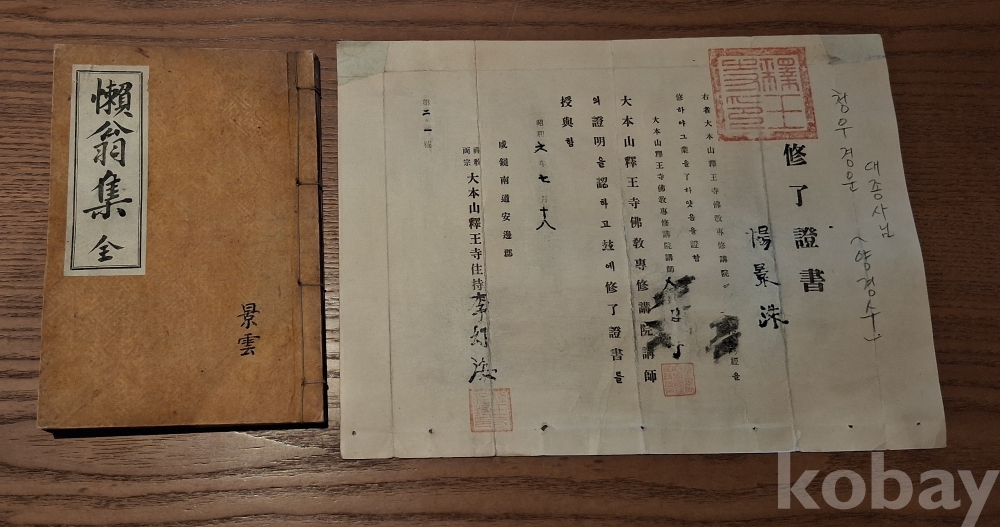 懶翁集 全
景雲
청우경운
대종사님
(양경수)
修了證書
楊景洙
右者大本山釋王寺佛敎專修講院
修하야그業을了하얏음을證함
大本山釋王寺佛敎專修講院講師
大本山釋王寺佛敎專修講院講師
의證明을認하고玆에修了證書를
授與함
昭和六年七月十八
咸鏡南道安邊郡
大本山釋王寺住持李
第二一號
kobay